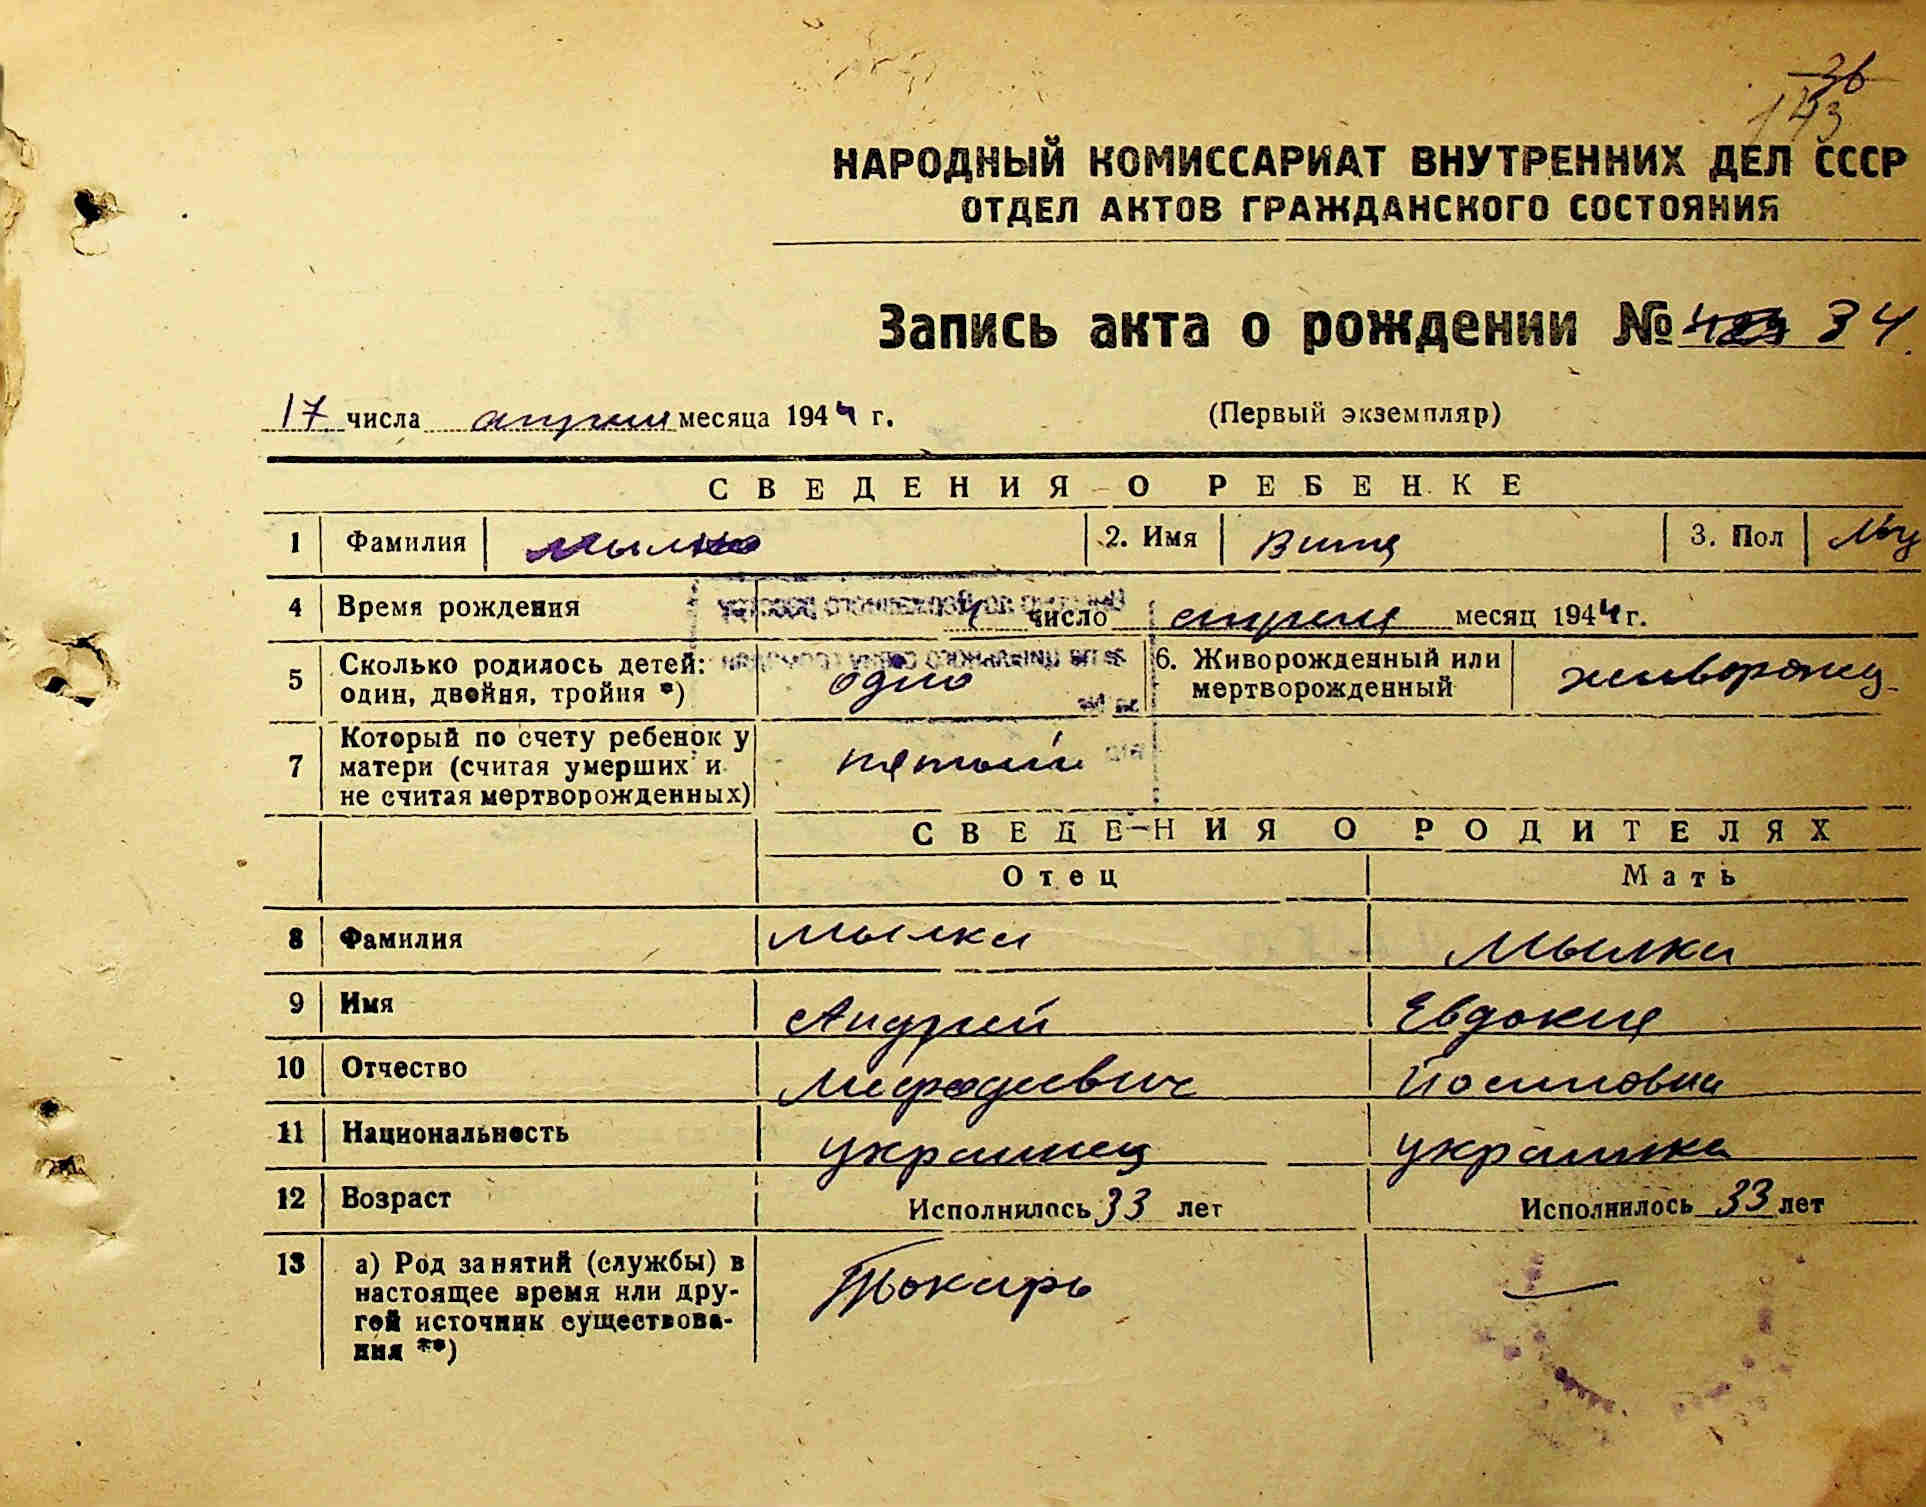 36
143
НАРОДНЫЙ КОМИССАРИАТ ВНУТРЕННИХ ДЕЛ СССР
ОТДЕЛ АКТОВ ГРАЖДАНСКОГО СОСТОЯНИЯ
Запись акта о рождении № 34
17 числа апреля месяца 1944 г. (Первый экземпляр)
СВЕДЕНИЯ О РЕБЕНКЕ
1 Фамилия Мылко 2. Имя Витя 3. Пол Му
4 Время рождения число апреля месяц 1944 г.
5 Сколько родилось детей: один, двойня, тройня *) одно 6. Живорожденный или мертворожденный живорожд.
7 Который по счету ребенок у матери (считая умерших и не считая мертворожденных) пятый
СВЕДЕНИЯ О РОДИТЕЛЯХ
Отец Мать
8 Фамилия Мылка Мылка
9 Имя Андрей Евдокия
10 Отчество Мефодиевич Йосиповна
11 Национальность украинец украинка
12 Возраст Исполнилось 33 лет Исполнилось 33 лет
13 а) Род занятий (службы) в настоящее время или другой источник существования **) Токарь —